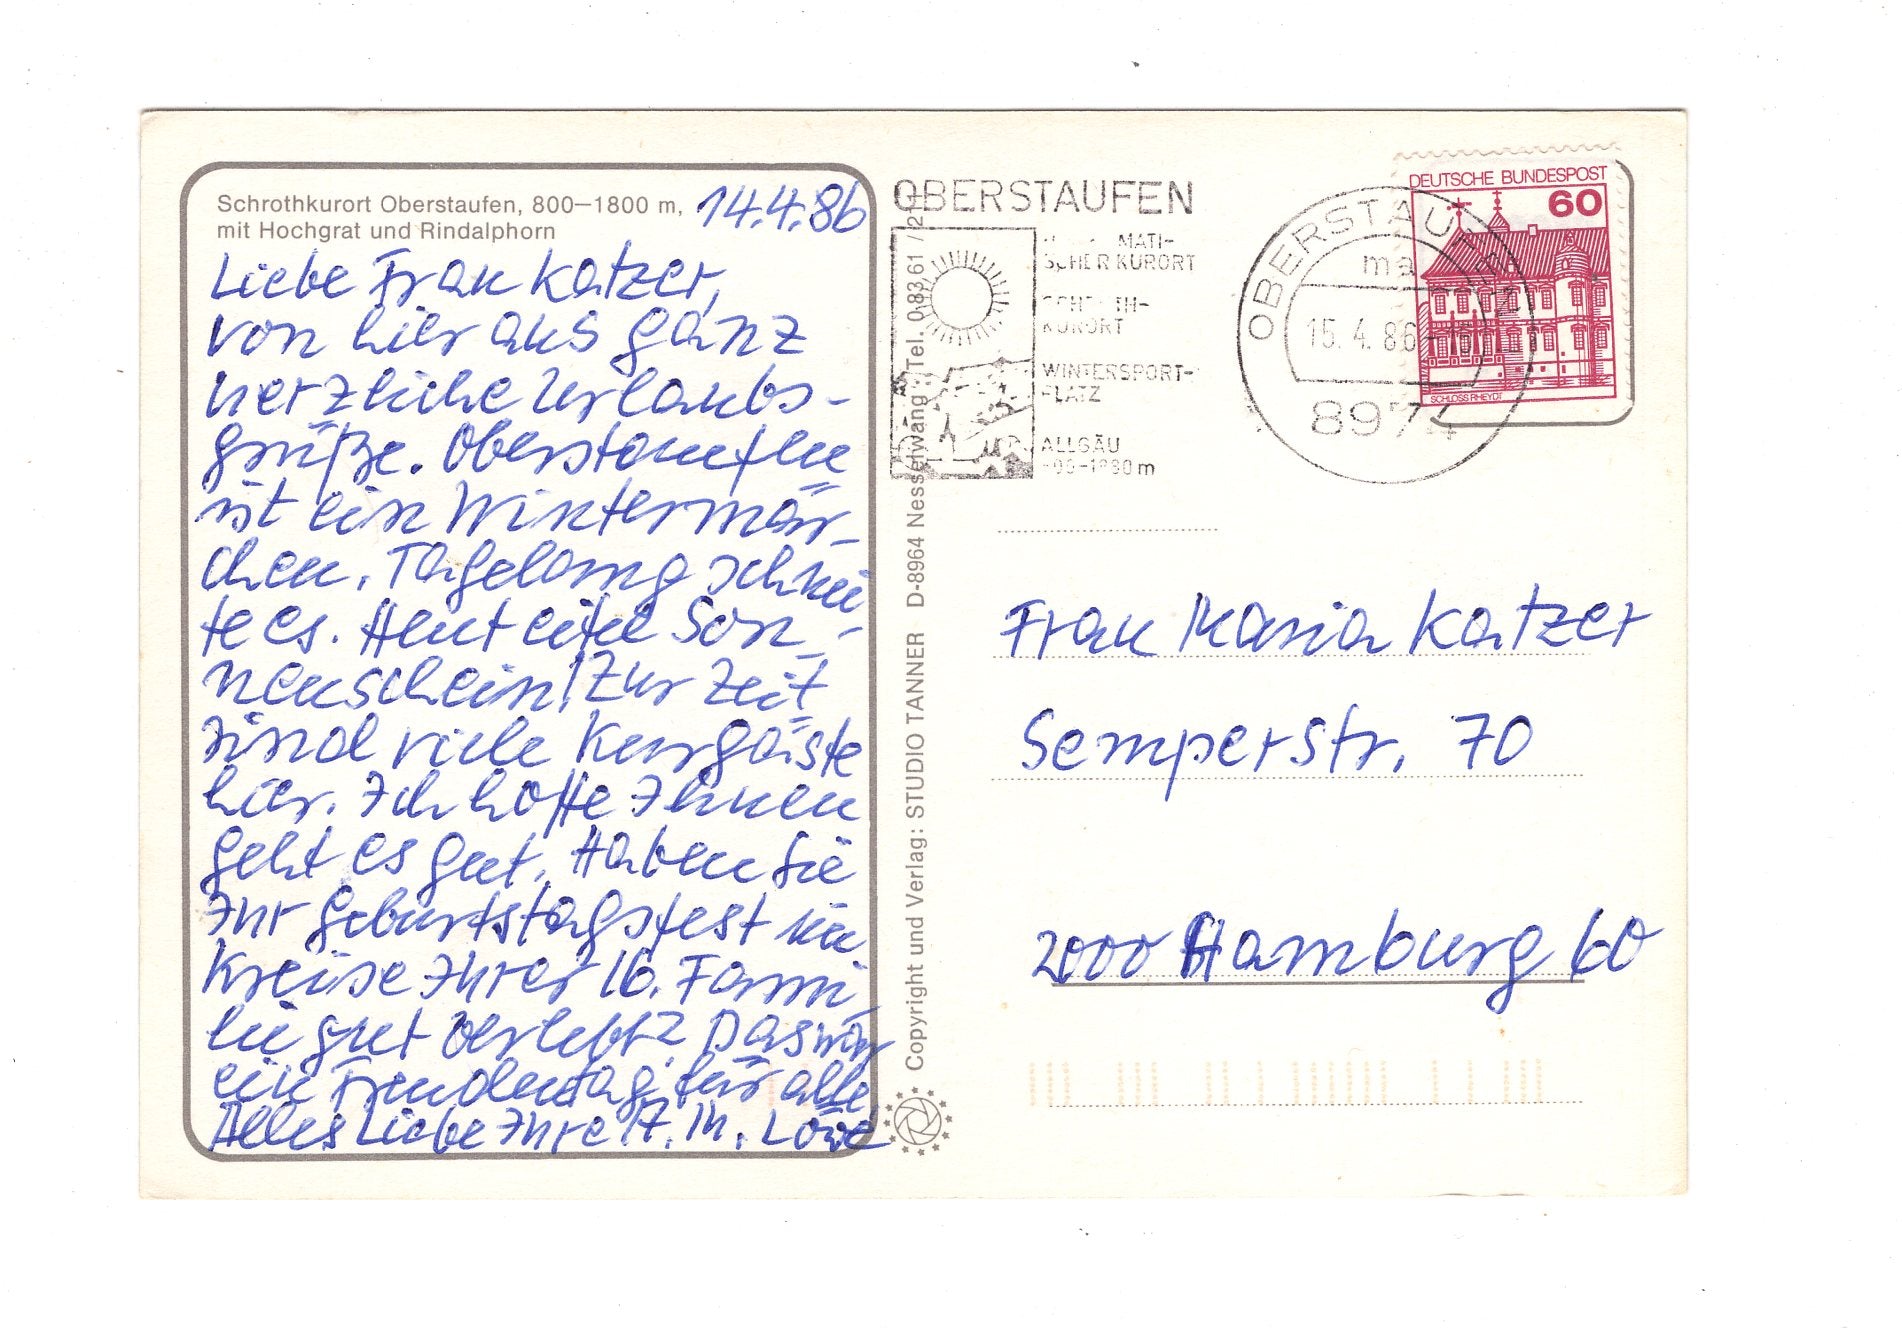 Schrothkurort Oberstaufen, 800–1800 m,
mit Hochgrat und Rindalphorn
14.4.86
Liebe Frau Katzer,
von hier aus ganz
herzliche Urlaubs-
grüße. Oberstaufen
ist ein Wintermär-
chen. Tagelang schnei-
te es. Heut eitel Son-
nenschein! Zur Zeit
sind viele Kurgäste
hier. Ich hoffe Ihnen
geht es gut. Haben Sie
Ihr Geburtstagsfest im
Kreise Ihrer lb. Fami-
lie gut verlebt? Das war
ein Freudentag für alle
Alles Liebe Ihre M. Löwe
Copyright und Verlag: STUDIO TANNER D-8964 Nesselwang · Tel. 083 61 /
OBERSTAUFEN
KURORT
KURORT
WINTERSPORT-
PLATZ
ALLGÄU
OBERSTAUFEN
15.4.86
8974
DEUTSCHE BUNDESPOST
60
SCHLOSS RHEYDT
Frau Maria Katzer
Semperstr. 70
2000 Hamburg 60